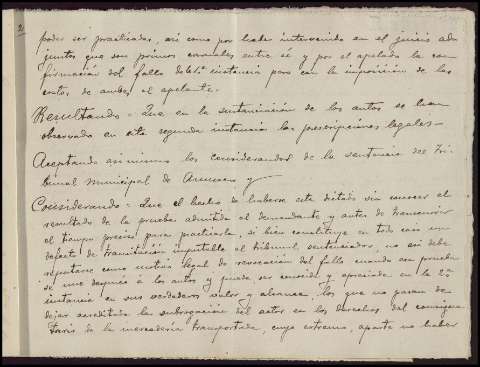 poder ser practicadas, así como por haber intervenido en el juicio ad-
juntos que son primos carnales entre sí y por el apelado la con-
firmación del fallo de 1ª instancia pero con la imposición de las
costas de ambas al apelante.
Resultando = Que en la sustanciación de los autos se han
observado en esta segunda instancia las prescripciones legales =
Aceptando asimismo los considerandos de la sentencia del Tri-
bunal municipal de y
Considerando = Que el hecho de haberse este dictado sin conocer el
resultado de la prueba admitida al demandante y antes de transcurrir
el tiempo preciso para practicarla, si bien constituye en todo caso un
defecto de tramitación imputable al tribunal sentenciador, no así debe
reputarse como motivo legal de revocación del fallo cuando esa prueba
se une después a los autos y puede ser conocida y apreciada en la 2ª
instancia en sus verdaderos valor y alcance, los que no pasan de
dejar acreditada la subrogación del actor en los derechos del consigna-
tario de la mercadería transportada, cuyo extremo, aparte no haber